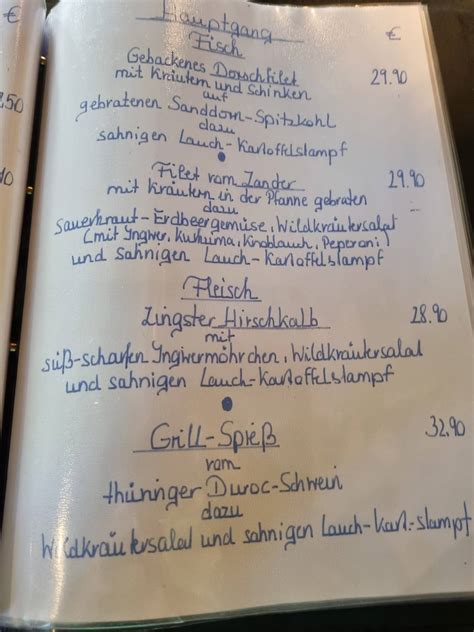 Hauptgang €
Fisch
Gebackenes Dorschfilet 29.90
mit Kräutern und Schinken
auf
gebratenen Sanddorn-Spitzkohl
dazu
sahnigen Lauch-Kartoffelstampf
Filet vom Zander 29.90
mit Kräutern in der Pfanne gebraten
dazu
Sauerkraut-Erdbeergemüse, Wildkräutersalat
(mit Ingwer, Kurkuma, Knoblauch, Peperoni)
und sahnigen Lauch-Kartoffelstampf
Fleisch
Zingster Hirschkalb 28.90
mit
süß-scharfen Ingwermöhrchen, Wildkräutersalat
und sahnigen Lauch-Kartoffelstampf
Grill-Spieß 32.90
vom
thüringer Duroc-Schwein
dazu
Wildkräutersalat und sahnigen Lauch-Kart.-stampf